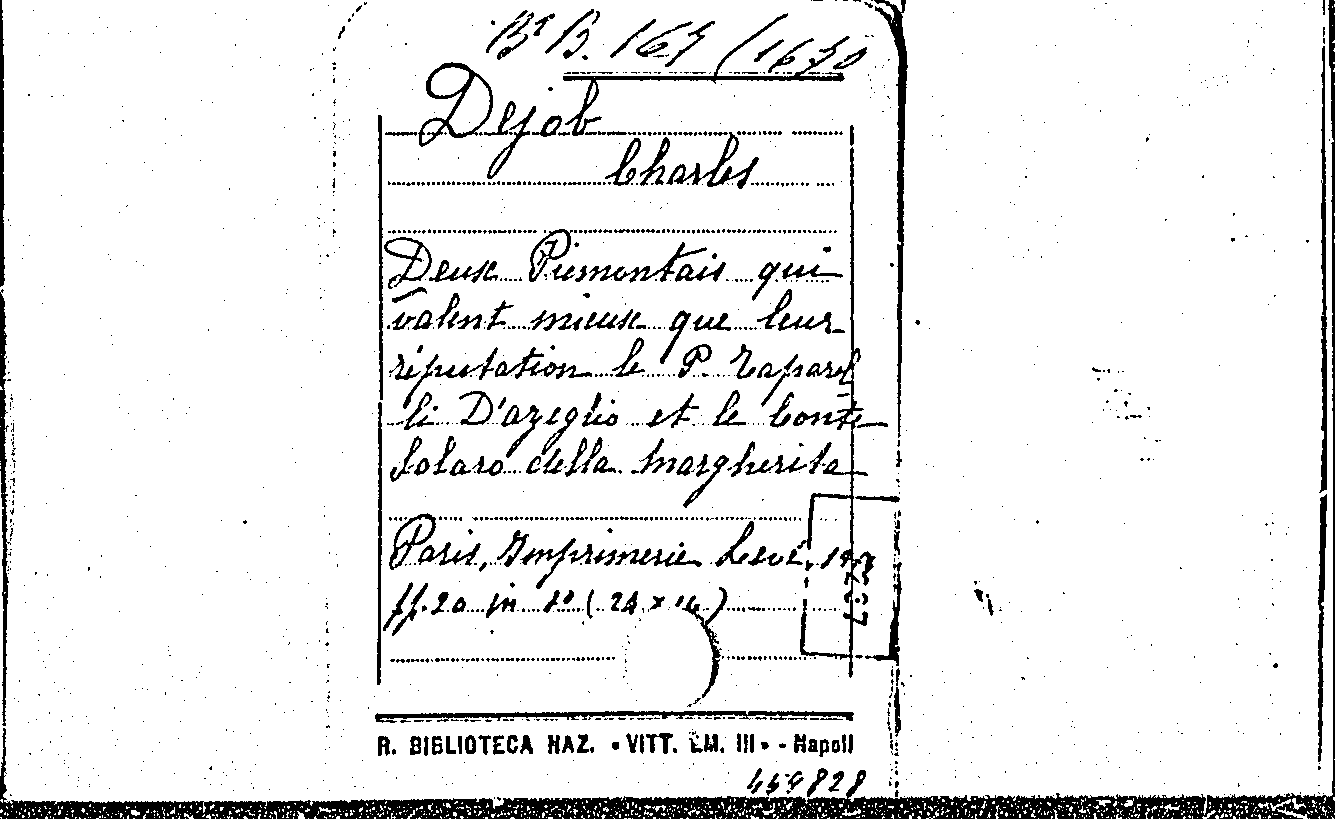 Bt B. 167 (1670
Dejob
Charles
Deux Piemontais qui
valent mieux que leur
réputation le P. Taparel
li D'azeglio et le Conte
Solaro della Margherita
Paris, Imprimerie Levé,
ff. 20 in 8° (24 x 16)
R. BIBLIOTECA NAZ. "VITT. EM. III" - Napoli
459828